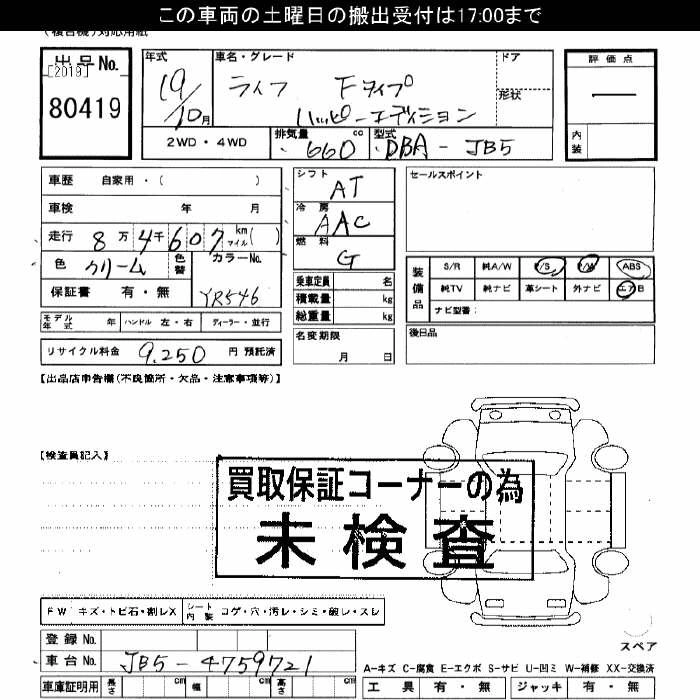 この車両の土曜日の搬出受付は17:00まで
(複合機)対応用紙
出品No.
[2019]
80419
年式
19/10月
車名・グレード
ライフ Fタイプ
ハッピーエディション
ドア
形状
評価点
―
内装
2WD・4WD
排気量
660 cc
型式
DBA-JB5
車歴 自家用・( )
車検 年 月
走行 8万4千607 km マイル( )
色 クリーム
色替
カラーNo.
YR546
保証書 有・無
モデル年式 年
ハンドル 左・右
ディーラー・並行
リサイクル料金 9,250 円 預託済
シフト
AT
冷房
AAC
燃料
G
乗車定員 名
積載量 kg
総重量 kg
名変期限
月 日
セールスポイント
装備品
S/R 純A/W P/S P/W ABS
純TV 純ナビ 革シート 外ナビ エアB
ナビ型番:
後日品
【出品店申告欄(不良箇所・欠品・注意事項等)】
【検査員記入】
買取保証コーナーの為
未検査
FW キズ・トビ石・割レX
シート内装 コゲ・穴・汚レ・シミ・破レ・スレ
登録No.
車台No. JB5-4759721
車庫証明用 長さ cm 幅 cm 高さ cm
スペア
A-キズ C-腐食 E-エクボ S-サビ U-凹ミ W-補修 XX-交換済
工具 有・無
ジャッキ 有・無